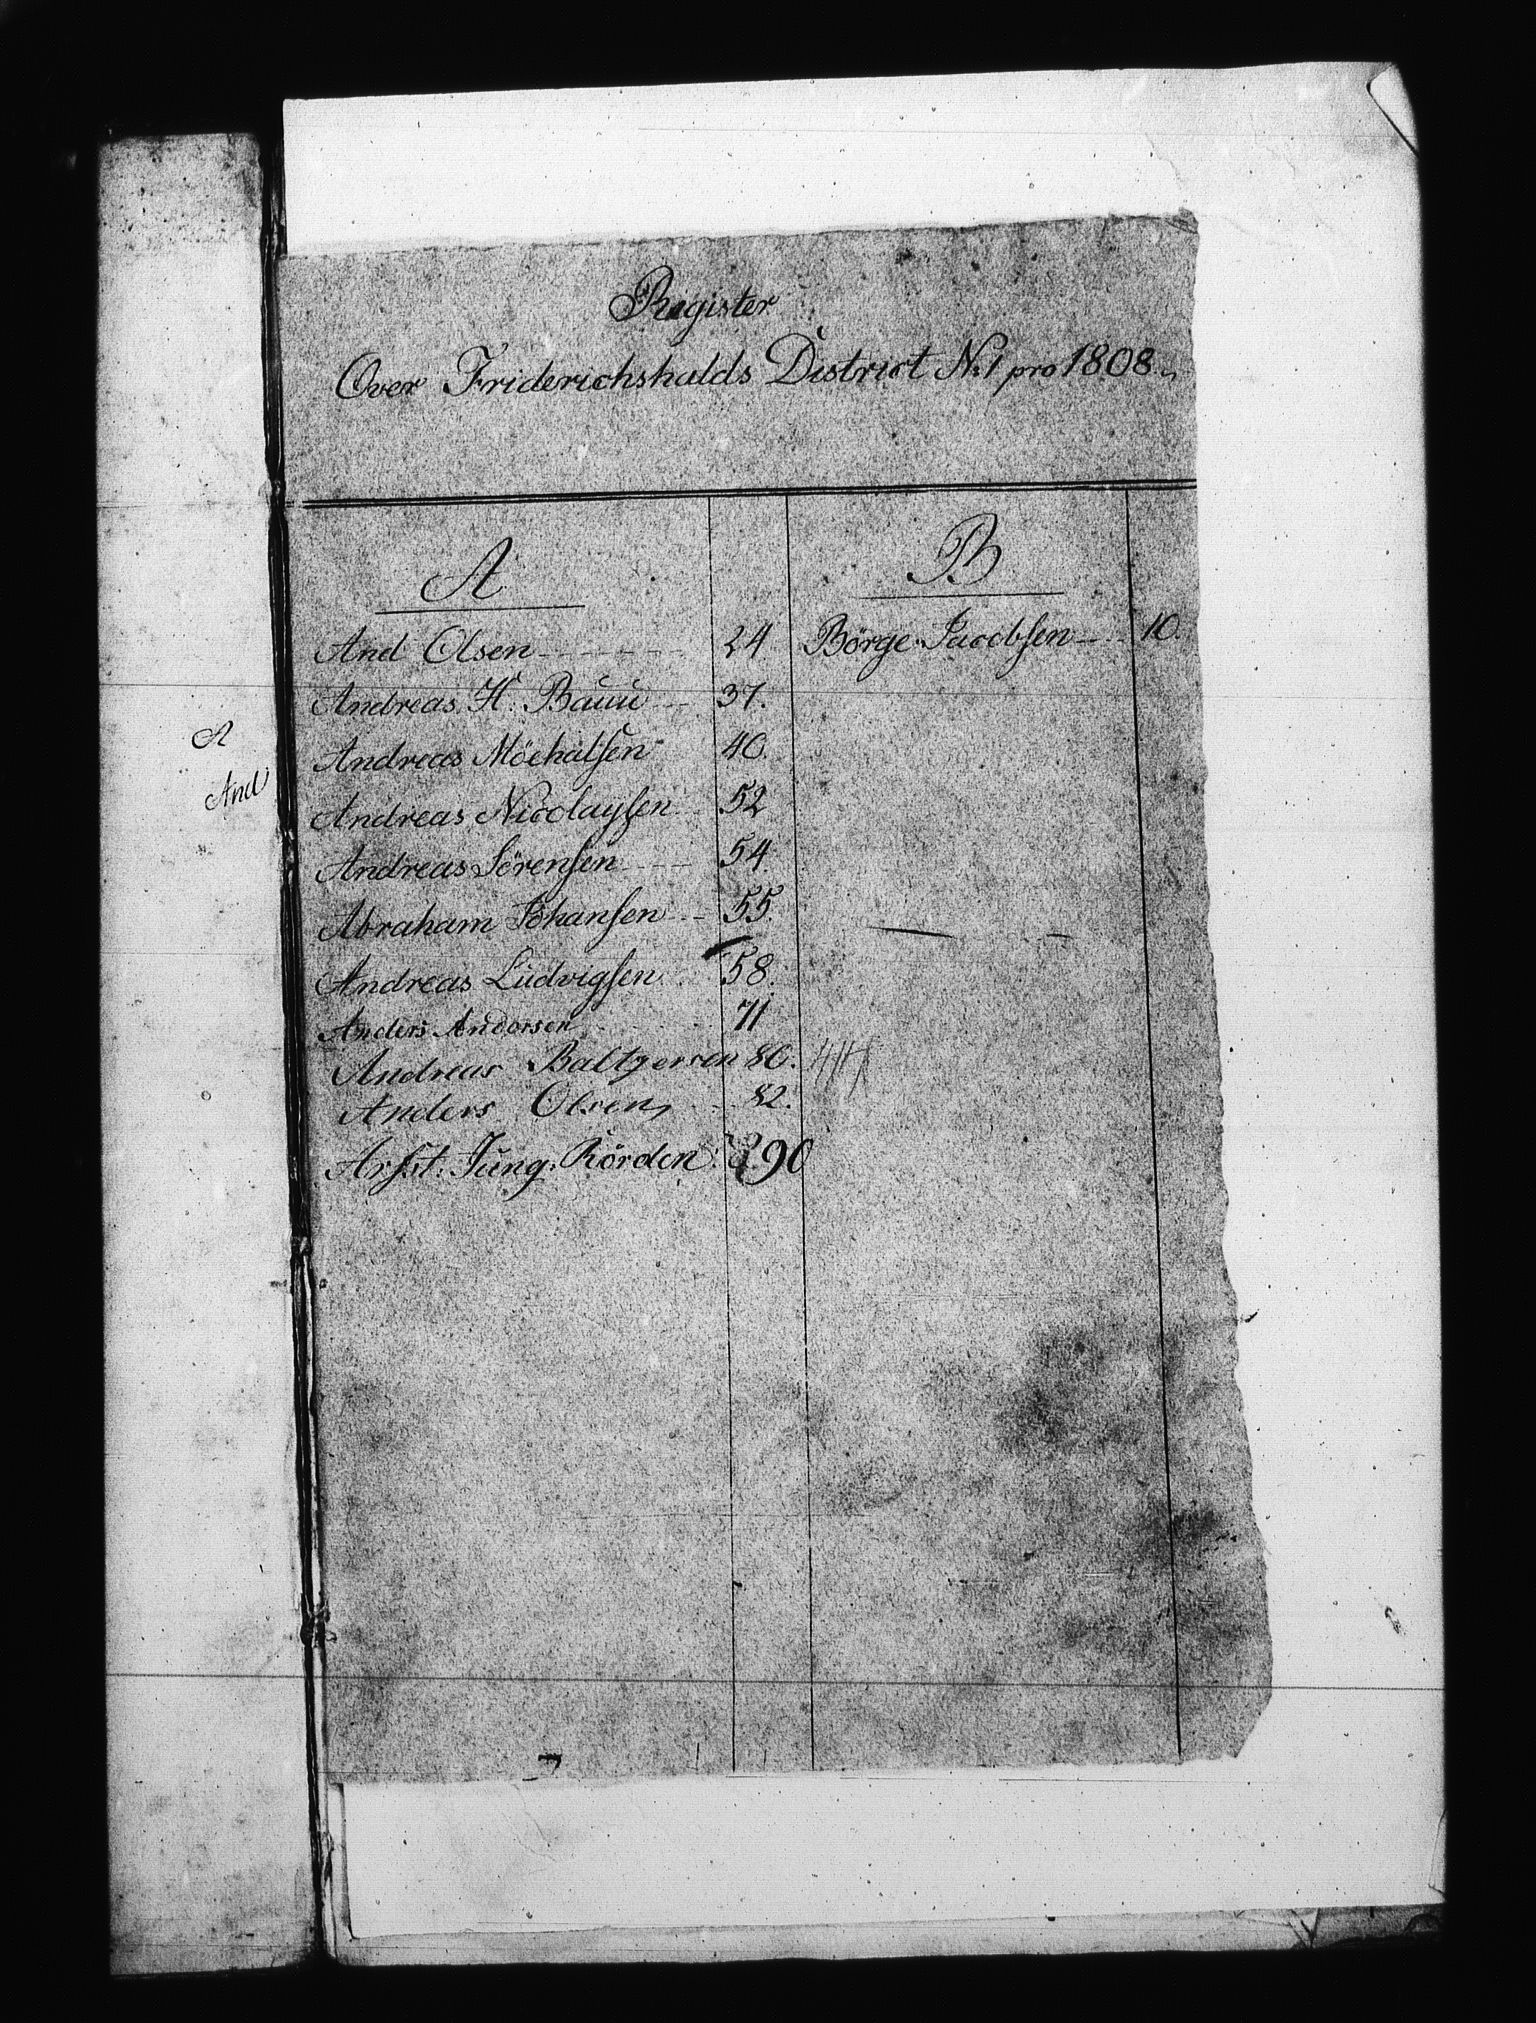 Register
Over Friderichshalds District No 1 pro 1808.
A
And Olsen 24
Andreas H. Bauu 37.
Andreas Möehalsen 40.
Andreas Nicolaysen 52
Andreas Sörensen 54.
Abraham Johansen 55.
Andreas Ludvigsen 58.
Anders Andersen 71
Andreas Baltzersen 80.
Anders Olsen 82.
Arfst. Jung. Rörden 90
B
Börge Jacobsen 10.
A
And